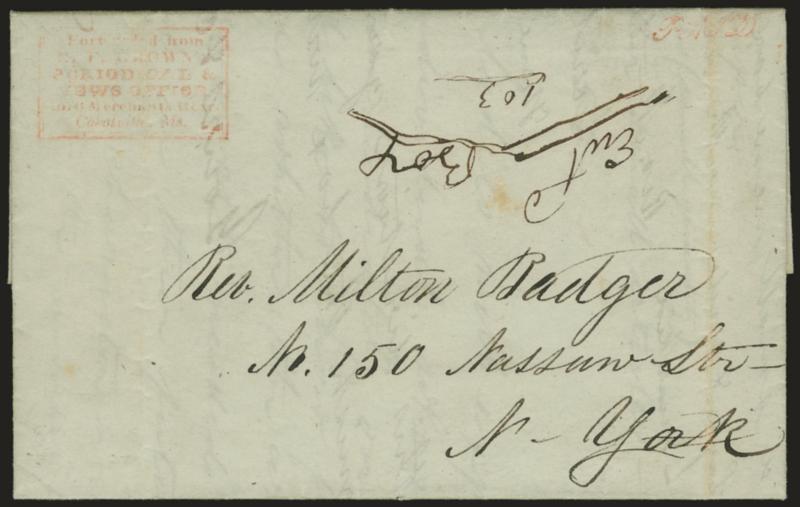 Forwarded from
BROWN'S
PERIODICAL &
NEWS OFFICE
Merchants Row,
Cabotville, Ms.
PAID
103
Rev. Milton Badger
No. 150 Nassau Str
N - York